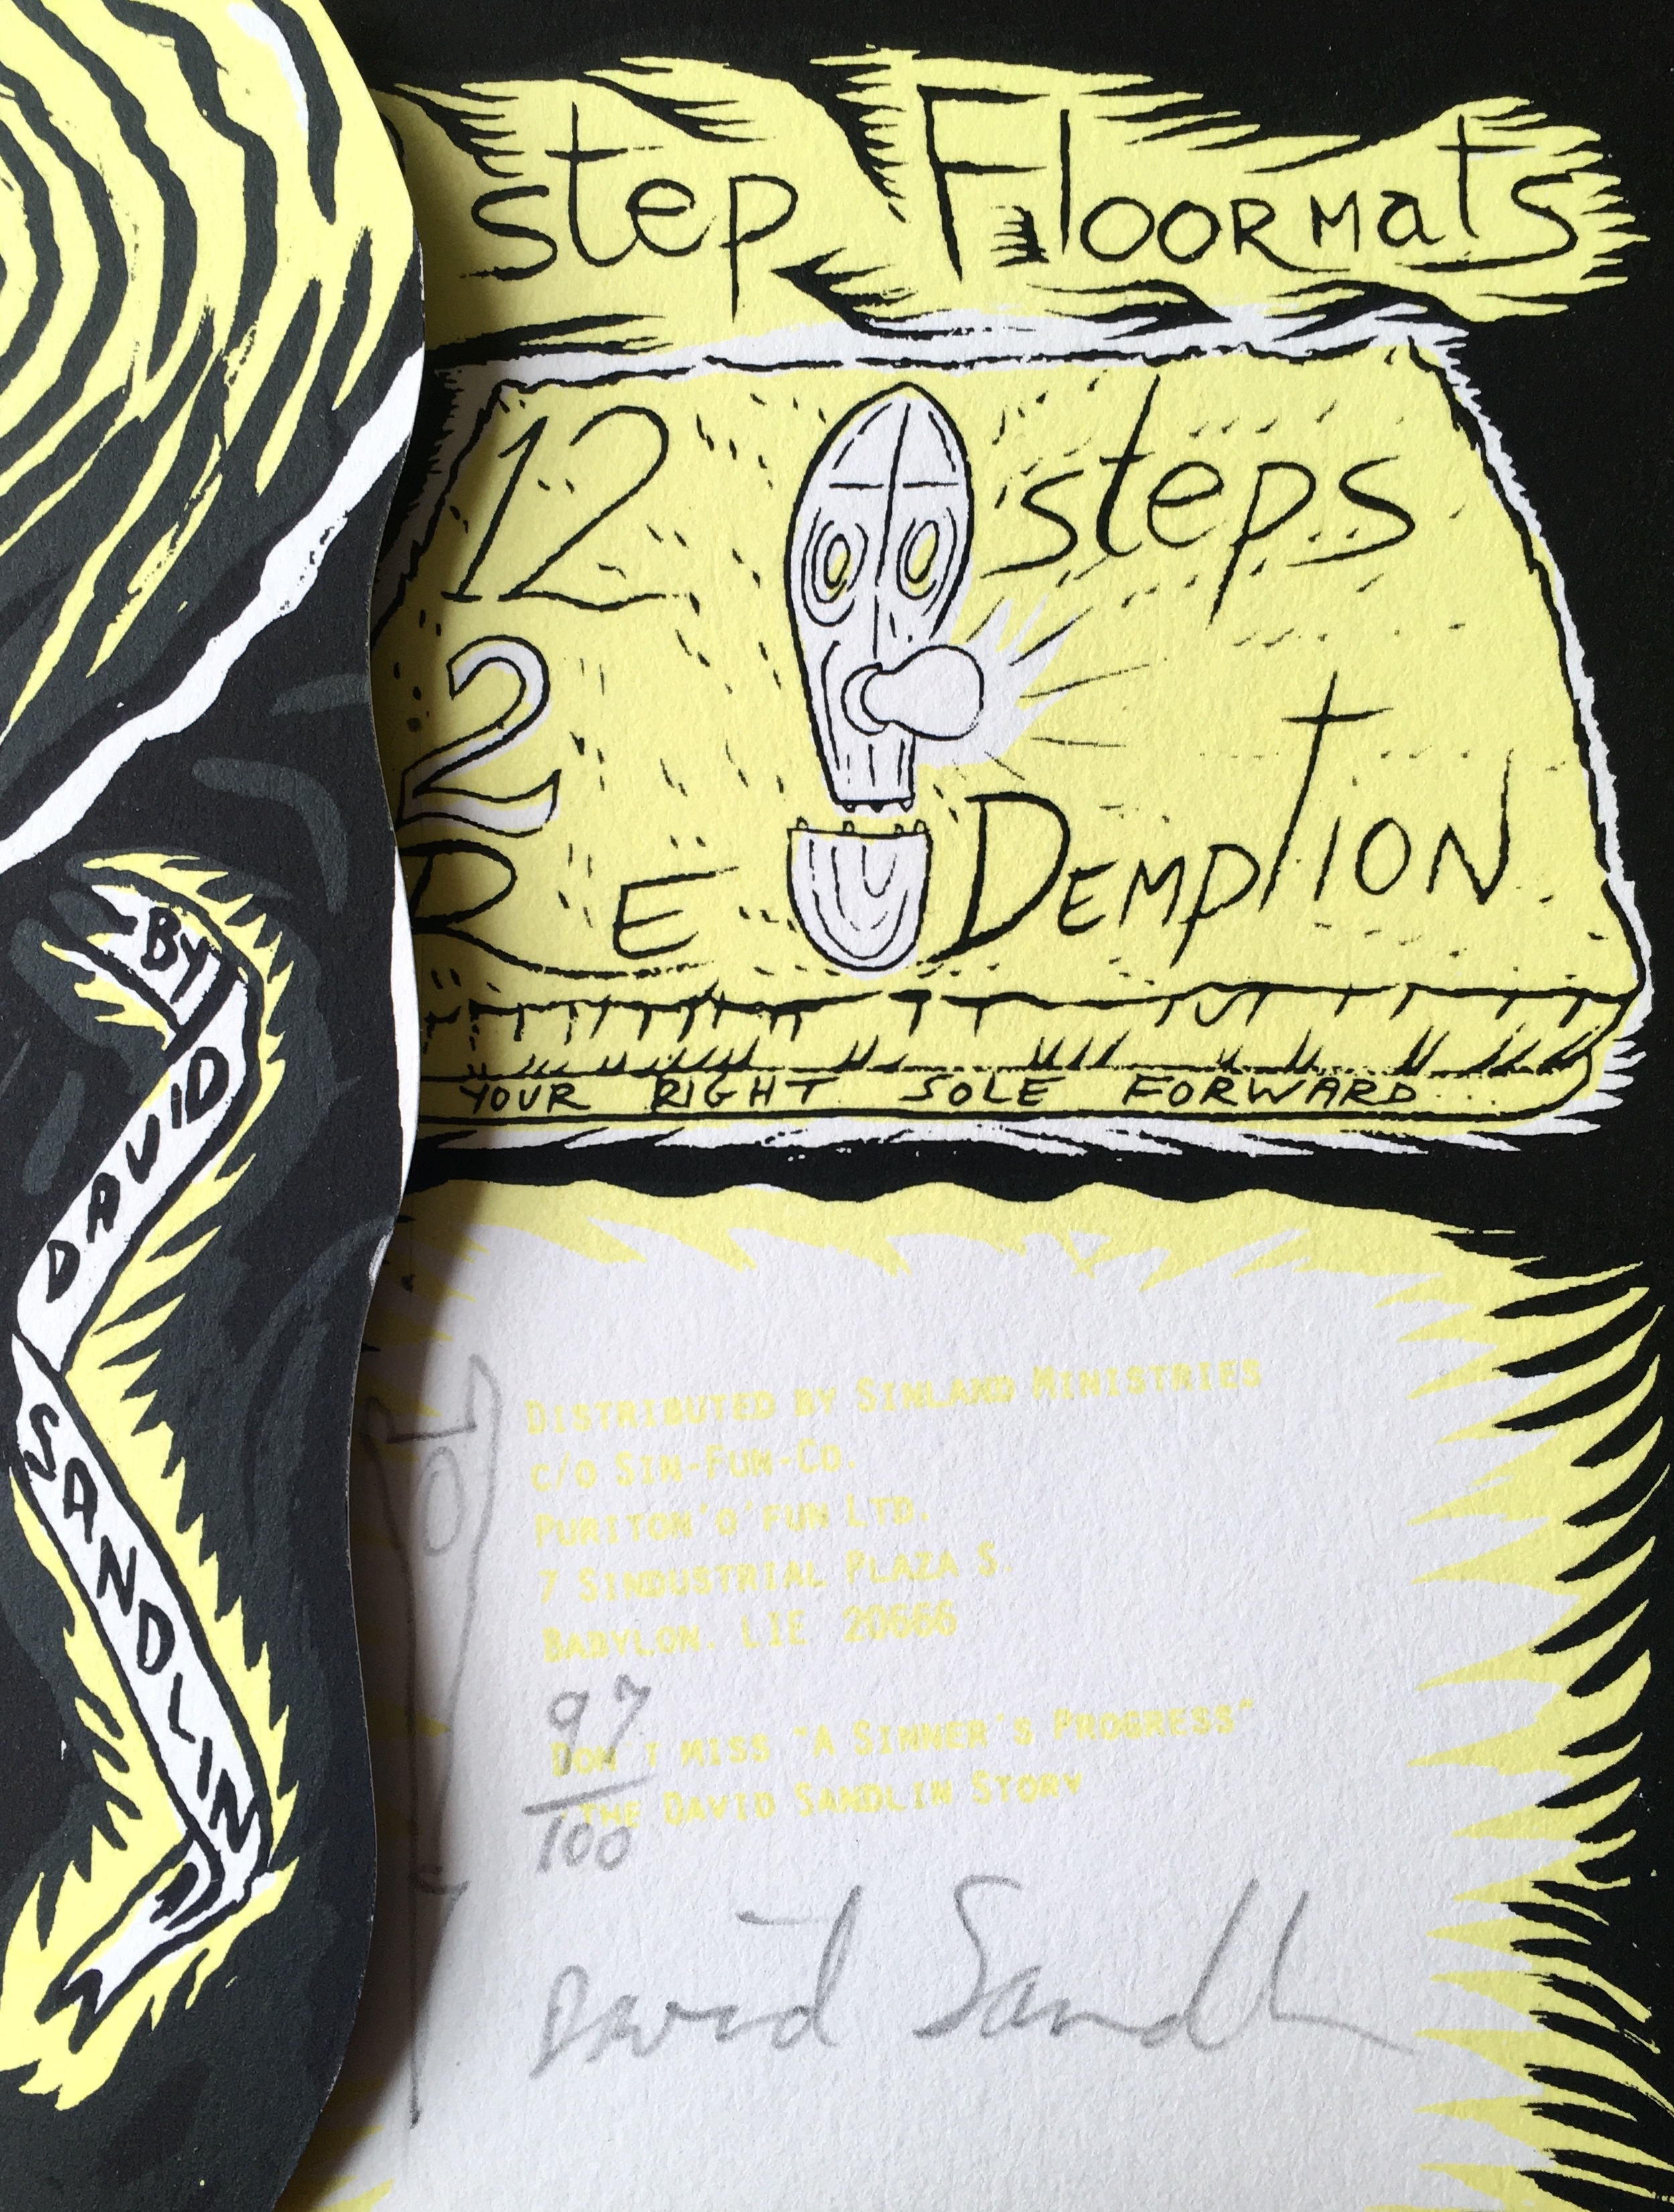 step Floormats
12 steps
2
REDemption
YOUR RIGHT SOLE FORWARD
BY
DAVID
SANDLIN
Distributed by Sinland Ministries
c/o Sin-Fun-Co.
Puriton'o'fun Ltd.
7 Sindustrial Plaza S.
Babylon. LIE 20666
97
Don't miss "A Sinner's Progress"
The David Sandlin Story
100
David Sandlin